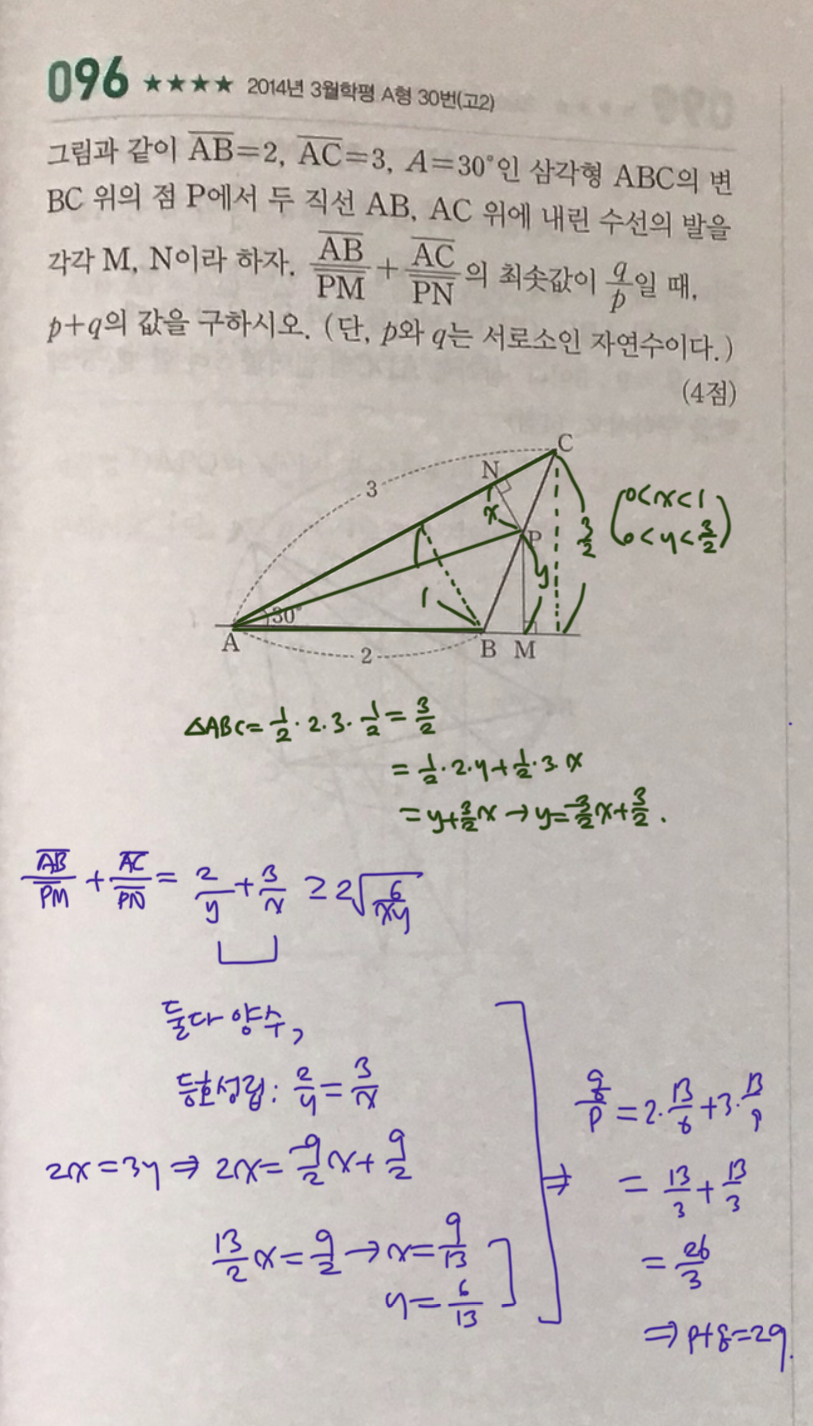 096 ★★★★ 2014년 3월학평 A형 30번(고2)
그림과 같이 \overline{AB}=2, \overline{AC}=3, A=30°인 삼각형 ABC의 변
BC 위의 점 P에서 두 직선 AB, AC 위에 내린 수선의 발을
각각 M, N이라 하자. \overline{AB}/\overline{PM} + \overline{AC}/\overline{PN}의 최솟값이 q/p일 때,
p+q의 값을 구하시오. (단, p와 q는 서로소인 자연수이다.)
(4점)
C
N
3
x
P
3/2
(0<x<1
0<y<3/2)
y
1
30°
A
2
B M
△ABC = 1/2 · 2 · 3 · 1/2 = 3/2
= 1/2 · 2 · y + 1/2 · 3 · x
= y + 3/2 x → y = -3/2 x + 3/2 .
\overline{AB}/\overline{PM} + \overline{AC}/\overline{PN} = 2/y + 3/x ≥ 2√(6/xy)
둘다 양수,
등호성립: 2/y = 3/x
2x = 3y ⇒ 2x = -9/2 x + 9/2
13/2 x = 9/2 → x = 9/13
y = 6/13
⇒
q/p = 2 · 13/6 + 3 · 13/9
= 13/3 + 13/3
= 26/3
⇒ p+q = 29.